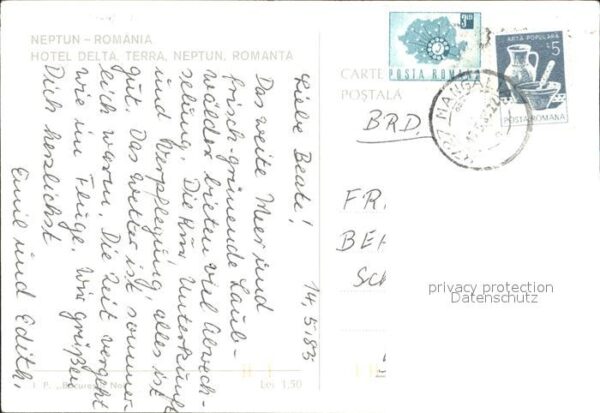 NEPTUN - ROMÂNIA
HOTEL DELTA, TERRA, NEPTUN, ROMANTA
Liebe Beate!
Das weite Meer und
frisch-grünende Laub-
wälder bieten viel Abwech-
selung. Die Kur, Unterkunft
und Verpflegung, alles ist
gut. Das Wetter ist sommer-
lich warm. Die Zeit vergeht
wie im Fluge. Wir grüßen
Dich herzlichst
Emil und Edith.
14.5.83
I. P.
Lei 1,50
CARTE
POȘTALĂ
BRD.
POSTA ROMANA
ARTĂ POPULARĂ
5
POSTA ROMANA
MANGALIA
FR
BE
SC
privacy protection
Datenschutz